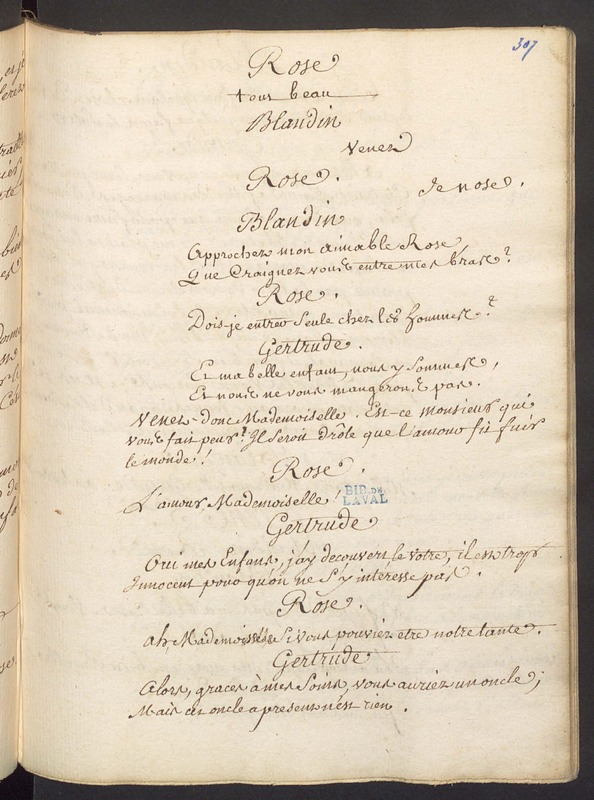 307
Rose
tous beau
Blandin
Venez
Rose.
Je nose.
Blandin
Approchez mon aimable Rose
Que Craignez vous entre mes bras?
Rose.
Dois-je entrer Seule chez les hommes?
Gertrude.
Et ma belle enfant, nous y Sommes,
Et nous ne vous mangerons pas.
Venez-donc Mademoiselle. Est-ce monsieur qui
vous fait peur? Il seroit drôle que l'amour fit fuir
le monde!
Rose.
L'amour Mademoiselle!
BIB. DE
LAVAL
Gertrude
Oui mes Enfans, j'ay decouvert le votre, il est trop
Innocent pour qu'on ne S'y intéresse pas.
Rose.
ah Mademoiselle Si vous pouviez etre notre tante.
Gertrude
Alors, graces à mes Soins, vous auriez un oncle;
Mais cet oncle apresent n'est rien.